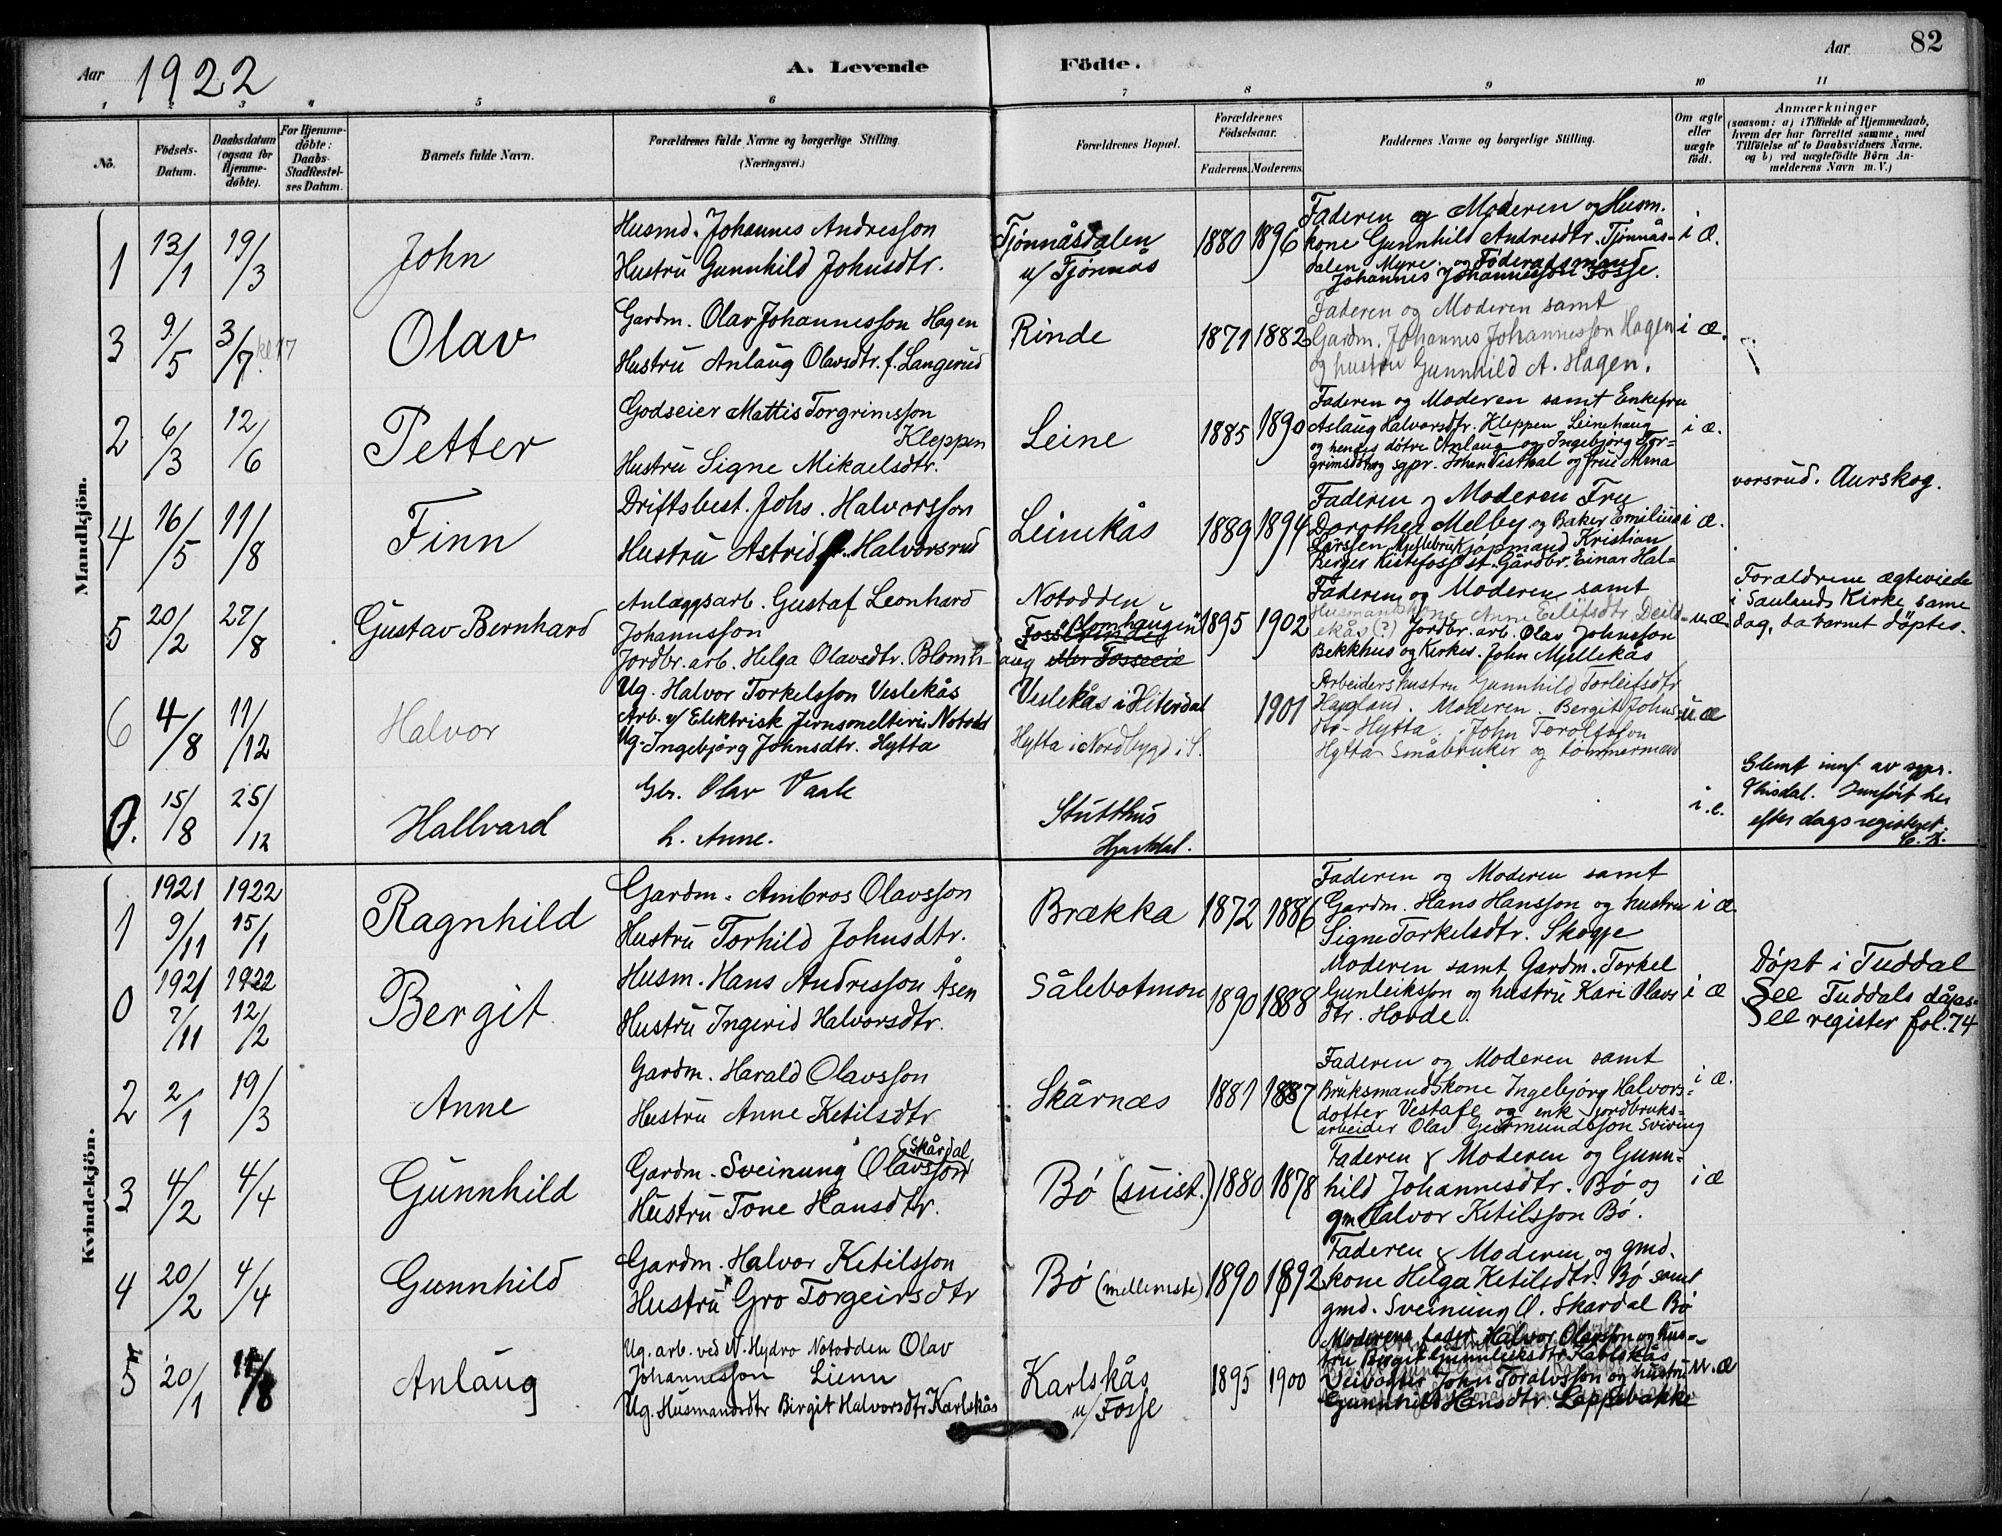 Aar 1922 A. Levende Födte. Aar 82
1 2 3 4 5 6 7 8 9 10 11
No.
Födsels-Datum.
Daabsdatum (ogsaa for Hjemme-döbte).
For Hjemme-döbte: Daabs-Stadfæstel-ses Datum.
Barnets fulde Navn.
Forældrenes fulde Navne og borgerlige Stilling (Næringsvei.)
Forældrenes Bopæl.
Forældrenes Födselsaar.
Faderens. Moderens.
Faddernes Navne og borgerlige Stilling.
Om ægte eller uægte födt.
Anmærkninger
(saasom: a) i Tilfælde af Hjemmedaab, hvem der har forrettet samme, med Tilföielse af to Daabsvidners Navne, og b) ved uægtefödte Börn An-melderens Navn m.V.)
Mandkjön.
1 13/1 19/3 John
Husmd. Johannes Andresson
Hustru Gunnhild Johnsdtr.
Tjønnåsdalen
u/ Tjønnås
1880 1896
Faderen og Moderen og Husm.
kone Gunnhild Andresdtr. Tjønnås-
dalen Myre. og Föderadsmand
Johannes Johannesson Fosse.
i æ.
3 9/5 3/7 kl 17 Olav
Gardm. Olav Johannesson Hagen
Hustru Anlaug Olavsdtr. f. Langerud
Rinde
1871 1882
Faderen og Moderen samt
Gardm. Johannes Johannesson Hagen
og hustru Gunnhild A. Hagen.
i æ.
2 6/3 12/6 Petter
Godseier Mattis Torgrimsson
Kleppen
Hustru Signe Mikaelsdtr.
Leine
1885 1890
Faderen og Moderen samt Enkefru
Aslaug Halvorsdtr. Kleppen Leinehaug
og hendes døtre Anlaug og Ingebjørg Tor-
grimsdtr og sgpr. Johan Tisthal og frue Alma
i æ.
4 16/5 11/8 Finn
Driftsbest. Johs. Halvorsson
Hustru Astrid f. Halvorsrud
Leinekås
1889 1894
Faderen og Moderen Fru
Dorothea Melby og Baker Emilius
Larssen, Mjellebruk, Kjøpmand Kristian
Berger Kistefoss st. Gårdbr. Einar Hal-
i æ.
vorsrud. Aurskog.
5 20/2 27/8 Gustav Bernhard
Anlægsarb. Gustaf Leonhard
Johannsson
Jordbr. arb. Helga Olavsdtr. Blomh-
aug
Notodden
"Blomhaugen"
1895 1902
Faderen og Moderen samt
Husmandskone Anne Eilifsdtr. Deild-
ekås (?) Jordbr. arb. Olav Johnsson
Bekkhus og Kirkes. John Mjellekås
u.æ.
Forældrene ægteviede
i Saulands Kirke same
dag, da barnet døptes.
6 4/8 11/12 Halvor
Ug. Halvor Torkelsson Veslekås
Arb. v/ Elektrisk Jernsmelteri Notodd
Ug. Ingebjørg Johnsdtr. Hytta
Veslekås i Hiterdal
Hytta i Nordbygd i S.
1901
Arbeiders hustru Gunnhild Torleifsdtr
Haugland. Moderen. Bergit Johns-
dtr Hytta. John Torolfsson
Hytta Småbruker og tømmermand
u.æ
0. 15/8 25/12 Hallvard
Gbr. Olav Vaale
h. Anne.
Stutthus
Hjartdal.
i.e.
Glemt innf. av sgpr.
Thisdal. Innført her
efter dagsregisteret.
Kvindekjön.
1 1921 9/11 1922 15/1 Ragnhild
Gardm. Ambros Olavsson
Hustru Torhild Johnsdtr.
Brækka
1872 1886
Faderen og Moderen samt
Gardm. Hans Hansson og hustru
Signe Torkelsdtr. Skogje
i æ
0 1921 7/11 1922 12/2 Bergit
Husm. Hans Andresson Åsen
Hustru Ingerid Halvorsdtr.
Sålebotmon
1890 1888
Moderen samt Gardm. Torkel
Gunleiksson og hustru Kari Olavs
dtr. Hovde.
i æ
Døpt i Tuddal
See Tuddals dåps-
See register fol. 74
2 2/1 19/3 Anne
Gardm. Harald Olavsson
Hustru Anne Ketilsdtr
Skårnæs
1881 1887
Faderen og Moderen samt
Bruksmandskone Ingebjørg Halvors-
dotter Vestafe og enk. jordbruks-
arbeider Olav Gudmundsson Sviving
i æ.
3 4/2 4/4 Gunnhild
(Skårdal
Gardm. Sveinung Olavsson
Hustru Tone Hansdtr.
Bø (suist.)
1880 1878
Faderen & Moderen og Gunn-
hild Johannesdtr. Bø og
gm Halvor Ketilsson Bø.
i æ
4 20/2 4/4 Gunnhild
Gardm. Halvor Ketilsson
Hustru Gro Torgeirsdtr
Bø (mellemste)
1890 1892
Faderen & Moderen og gmd.
kone Helga Ketilsdtr. Bø samt
gmd. Sveinung O. Skardal Bø
5 20/1 /8 Anlaug
Ug. arb. ved N. Hydro Notodden Olav
Johannesson Lienn
Ug. Husmandsdtr Birgit Halvorsdtr Karlskås
Karlskås
u/ Fosse
1895 1900
Moderens fader Halvor Olavsson og hus-
tru Birgit Gunnleiksdtr Karlskås
Veivogter John Toralvsson og hustru
Gunnhild Hansdtr. Loppebakke
u.æ